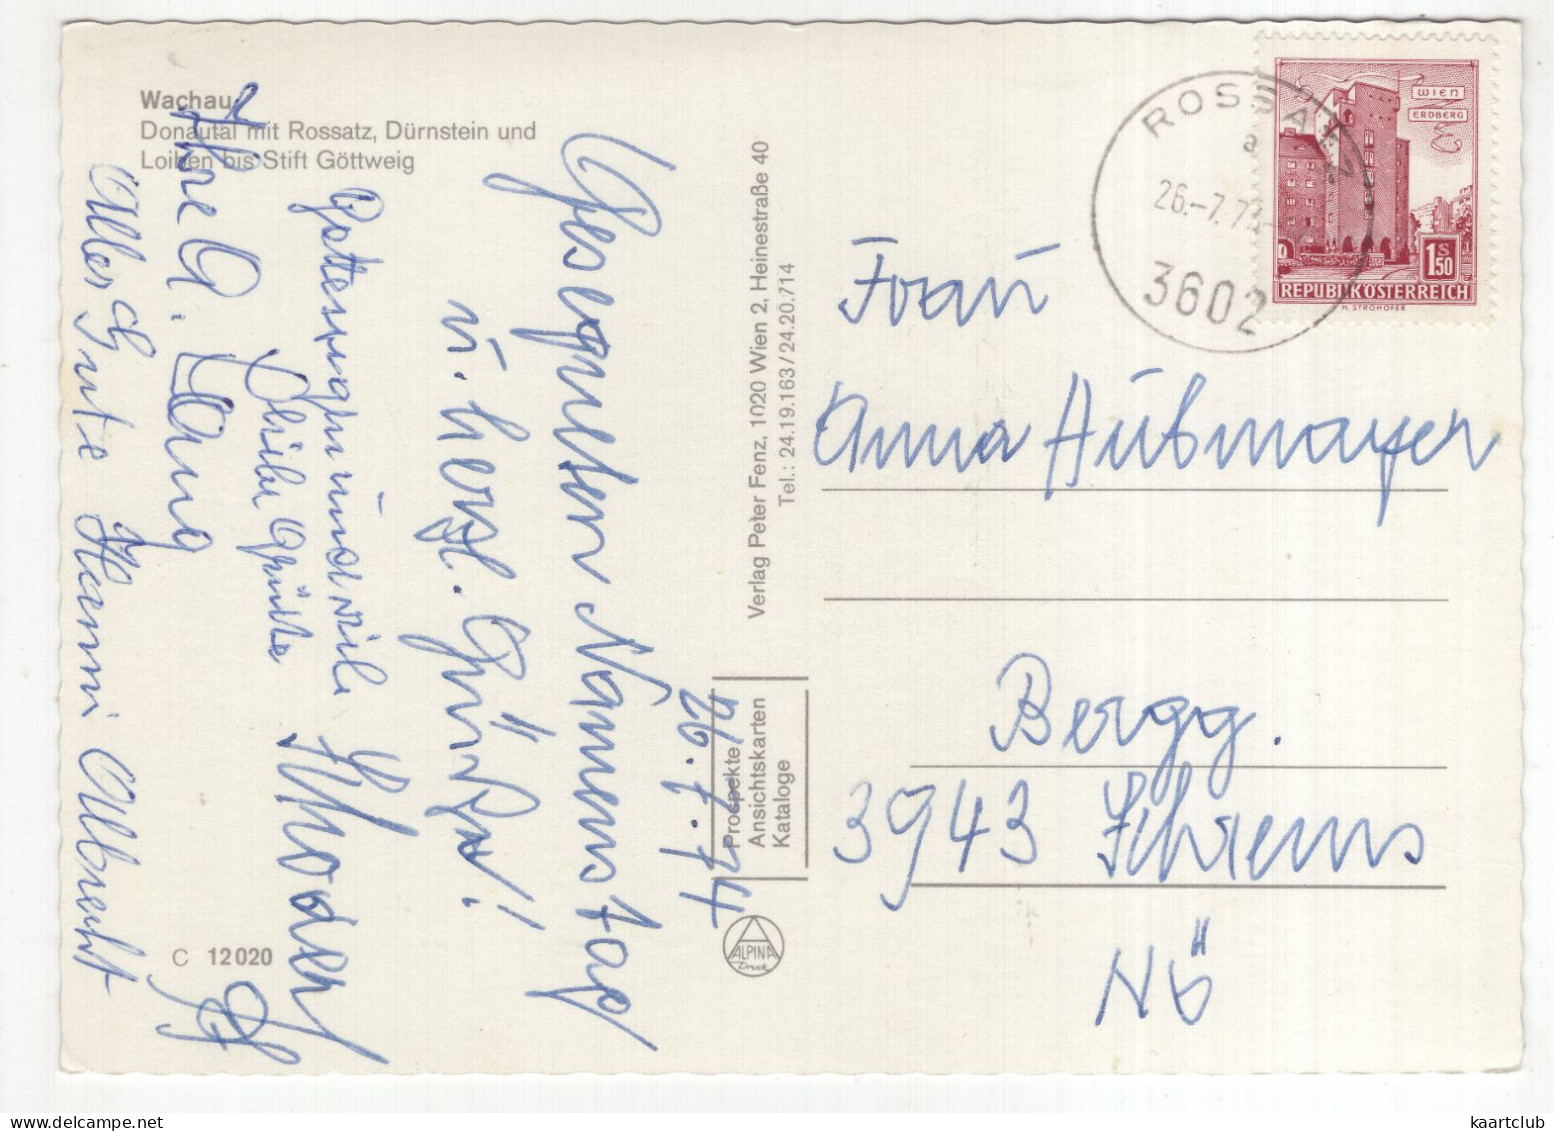 Wachau
Donautal mit Rossatz, Dürnstein und
Loiben bis Stift Göttweig
Gesegneten Namenstag
u. herzl. Grüße!
26.7.74
viele
liebe Grüße
Ihre A. Lang
Alles Gute Hanni Albrecht
C 12020
Verlag Peter Fenz, 1020 Wien 2, Heinestraße 40
Tel.: 24.19.163/24.20.714
Prospekte
Ansichtskarten
Kataloge
ALPINA
Druck
ROSSATZ
a
26.-7.74
3602
WIEN
ERDBERG
1.50
S
REPUBLIK ÖSTERREICH
H. STROHOFER
Frau
Anna Aubmayer
Bergg.
3943 Schrems
NÖ
kaartclub